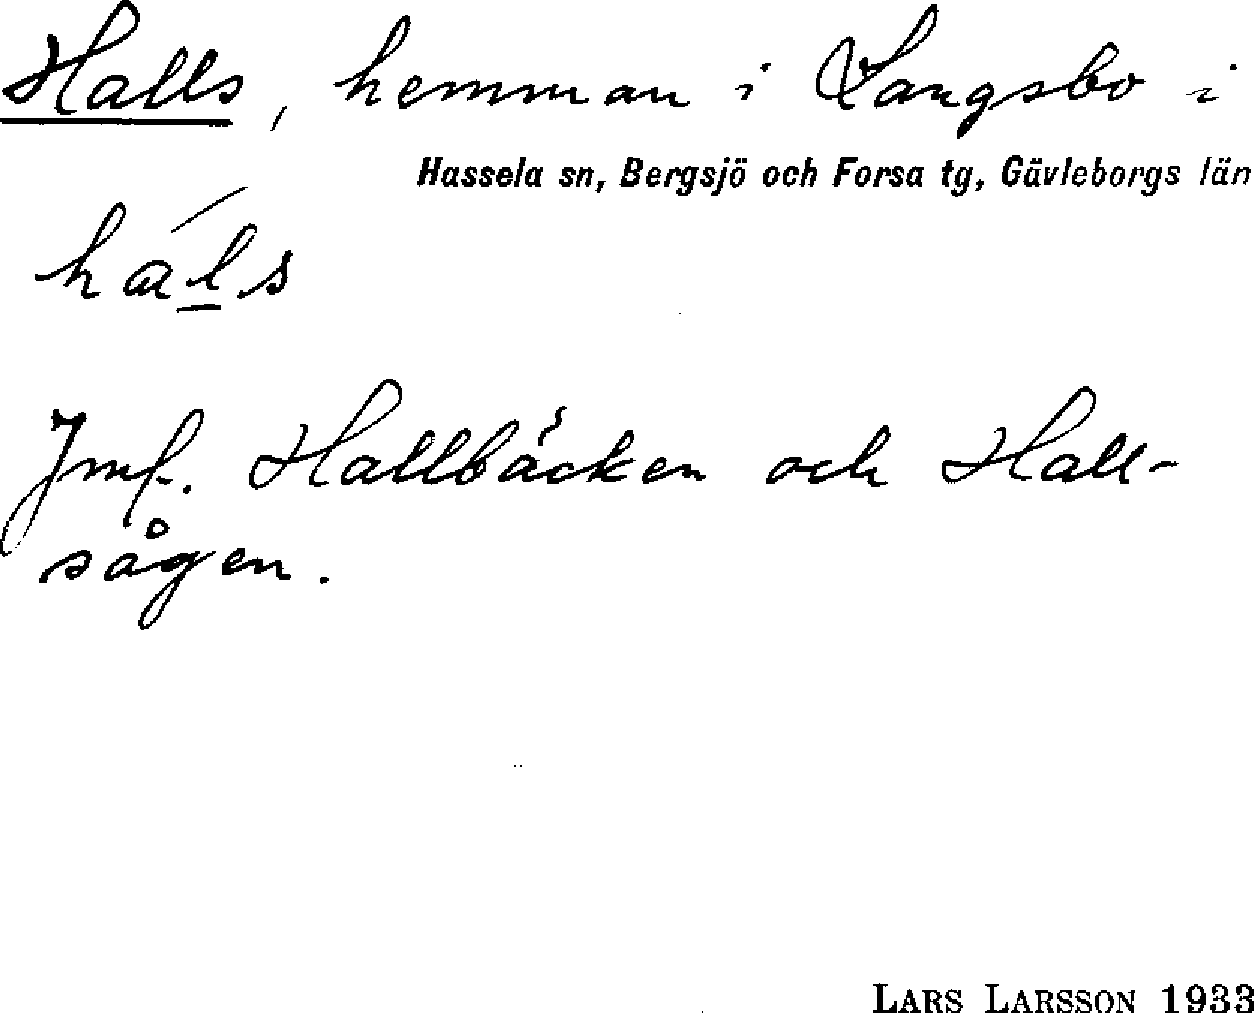 Halls, hemman i Långsbo i
Hassela sn, Bergsjö och Forsa tg, Gävleborgs län
háls
Jmf. Hallbäcken och Hall-
sågen.
LARS LARSSON 1933